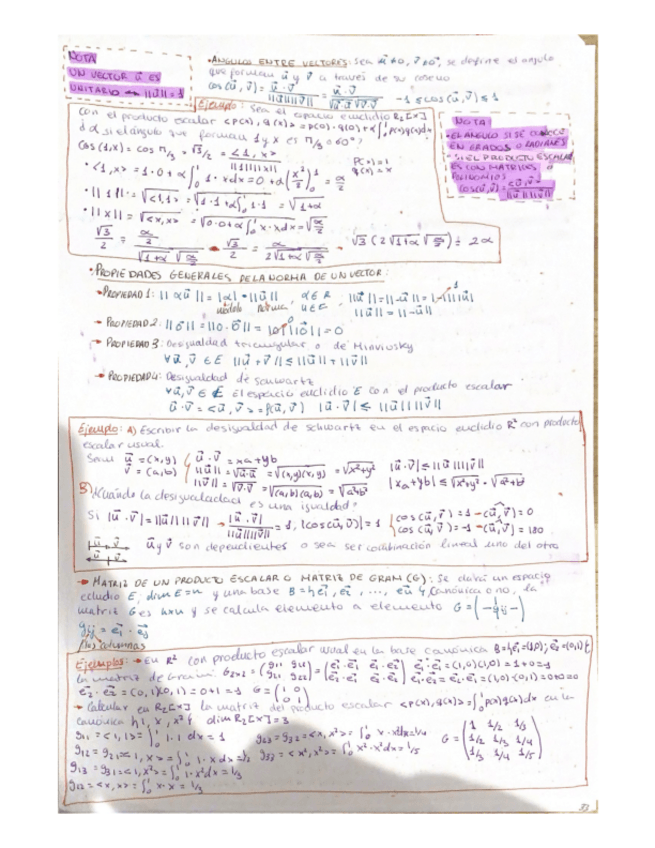 NOTA
UN VECTOR u⃗ ES
UNITARIO ↔ ||u⃗||=1
• ÁNGULO ENTRE VECTORES: Sea u⃗≠0, v⃗≠0, se define el ángulo
que forman u⃗ y v⃗ a través de su coseno
cos(u⃗,v⃗) = u⃗·v⃗ / ||u⃗|| ||v⃗|| = u⃗·v⃗ / √u⃗·u⃗ √v⃗·v⃗   -1 ≤ cos(u⃗,v⃗) ≤ 1
Ejemplo: Sea el espacio euclidio R₂[x]
con el producto escalar <p(x), q(x)> = p(0)·q(0)+α∫₀¹ p(x)q(x)dx
¿α si el ángulo que forman 1 y x es π/3 = 60°?
cos(1,x) = cos π/3 = √3/2 = <1,x> / ||1|| ||x||
p(x)=1
q(x)=x
• <1,x> = 1·0+α∫₀¹ 1·x dx = 0+α(x²/2)₀¹ = α/2
• ||1|| = √<1,1> = √1·1+α∫₀¹ 1·1 = √1+α
• ||x|| = √<x,x> = √0·0+α∫₀¹ x·x dx = √α/3
√3/2 = α/2 / √1+α √α/3 → √3/2 = α / 2√1+α √α/3 → √3(2√1+α √α/3) = 2α
NOTA
• EL ÁNGULO SI SE
EN GRADOS O RADIANES
EL PRODUCTO ESCALAR
ES CON MATRICES O
POLINOMIOS
cos(u⃗,v⃗) = <u⃗,v⃗> / ||u⃗|| ||v⃗||
• PROPIEDADES GENERALES DE LA NORMA DE UN VECTOR:
→ PROPIEDAD 1: ||αu⃗|| = |α|·||u⃗||, α∈R, u∈E, ||u⃗||=||-u⃗||=|-1|||u⃗||
módulo norma   ||u⃗|| = ||-u⃗||
→ PROPIEDAD 2: ||0⃗|| = ||0·0⃗|| = |0| ||0⃗|| = 0
→ PROPIEDAD 3: Desigualdad triangular o de Minviusky
∀u⃗,v⃗ ∈ E ||u⃗+v⃗|| ≤ ||u⃗||+||v⃗||
→ PROPIEDAD 4: Desigualdad de Schwartz
∀u⃗,v⃗ ∈ E El espacio euclidio E con el producto escalar
u⃗·v⃗ = <u⃗,v⃗> = f(u⃗,v⃗)   |u⃗·v⃗| ≤ ||u⃗|| ||v⃗||
Ejemplo: A) Escribir la desigualdad de schwartz en el espacio euclidio R² con producto
escalar usual.
Sean u⃗ = (x,y)   u⃗·v⃗ = xa+yb
v⃗ = (a,b)   ||u⃗|| = √u⃗·u⃗ = √(x,y)(x,y) = √x²+y²   |u⃗·v⃗| ≤ ||u⃗|| ||v⃗||
||v⃗|| = √v⃗·v⃗ = √(a,b)(a,b) = √a²+b²   |xa+yb| ≤ √x²+y² · √a²+b²
B) ¿Cuándo la desigualdadad
es una igualdad?
Si |u⃗·v⃗| = ||u⃗|| ||v⃗|| → |u⃗·v⃗| / ||u⃗|| ||v⃗|| = 1, |cos(u⃗,v⃗)| = 1   cos(u⃗,v⃗) = 1 → (u⃗,v⃗) = 0
cos(u⃗,v⃗) = -1 → (u⃗,v⃗) = 180
u⃗ y v⃗ son dependientes o sea ser combinación lineal uno del otro
→ MATRIZ DE UN PRODUCTO ESCALAR O MATRIZ DE GRAM (G): Se dará un espacio
ecludio E, dim E=n y una base B={e⃗₁, e⃗₂, ..., e⃗ₙ}, canónica o no, la
matriz G es n×n y se calcula elemento a elemento G = (-gij-)
gij = e⃗i · e⃗j
filas columnas
Ejemplos: → En R² con producto escalar usual en la base canónica B={e⃗₁=(1,0); e⃗₂=(0,1)}
la matriz de Gram: G₂ₓ₂ = (g₁₁ g₁₂ / g₂₁ g₂₂) = (e⃗₁·e⃗₁ e⃗₁·e⃗₂ / e⃗₂·e⃗₁ e⃗₂·e⃗₂)   e⃗₁·e⃗₁ = (1,0)(1,0) = 1+0=1
e⃗₁·e⃗₂ = e⃗₂·e⃗₁ = (1,0)·(0,1) = 0+0=0
e⃗₂·e⃗₂ = (0,1)(0,1) = 0+1 = 1   G = (1 0 / 0 1)
→ Calcular en R₂[x] la matriz del producto escalar <p(x),q(x)> = ∫₀¹ p(x)q(x)dx en la
canónica {1, x, x²} dim R₂[x] = 3
g₁₁ = <1,1> = ∫₀¹ 1·1 dx = 1   g₂₃ = g₃₂ = <x,x²> = ∫₀¹ x·x²dx = 1/4
g₁₂ = g₂₁ = <1,x> = ∫₀¹ 1·x dx = 1/2   g₃₃ = <x²,x²> = ∫₀¹ x²·x²dx = 1/5
G = (1 1/2 1/3 / 1/2 1/3 1/4 / 1/3 1/4 1/5)
g₁₃ = g₃₁ = <1,x²> = ∫₀¹ 1·x²dx = 1/3
g₂₂ = <x,x> = ∫₀¹ x·x = 1/3
33